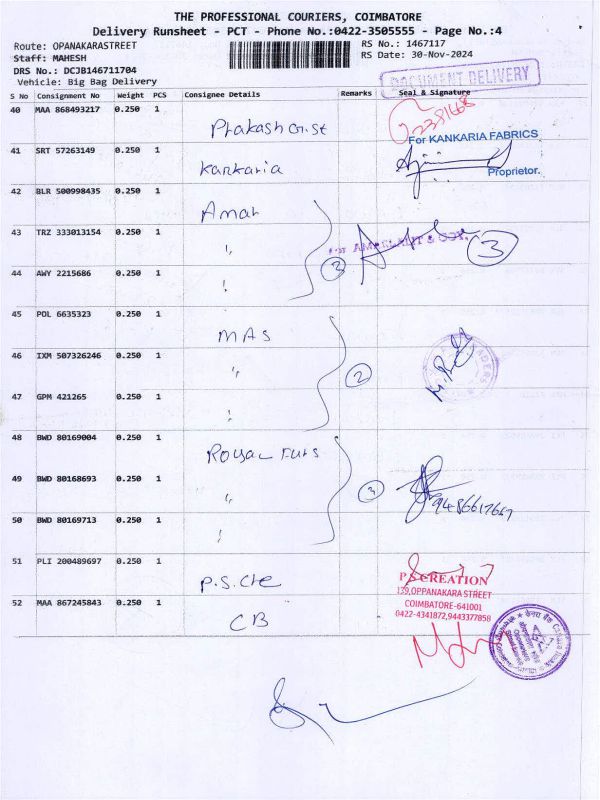 THE PROFESSIONAL COURIERS, COIMBATORE
Delivery Runsheet - PCT - Phone No.:0422-3505555 - Page No.:4
Route: OPANAKARASTREET
RS No.: 1467117
Staff: MAHESH
RS Date: 30-Nov-2024
DRS No.: DCJB146711704
Vehicle: Big Bag Delivery
DOCUMENT DELIVERY
S No Consignment No Weight PCS Consignee Details Remarks Seal & Signature
40 MAA 868493217 0.250 1
41 SRT 57263149 0.250 1 Kankaria
For KANKARIA FABRICS
Proprietor.
42 BLR 500998435 0.250 1
43 TRZ 333013154 0.250 1 " 3
44 AWY 2215686 0.250 1 "
45 POL 6635323 0.250 1 MAS
46 IXM 507326246 0.250 1 " 2
47 GPM 421265 0.250 1 "
48 BWD 80169004 0.250 1 Royal Furs
49 BWD 80168693 0.250 1 "
50 BWD 80169713 0.250 1 "
51 PLI 200489697 0.250 1 P.S.Cre
P.S CREATION
139,OPPANAKARA STREET
COIMBATORE-641001
0422-4341872,9443377858
52 MAA 867245843 0.250 1 CB